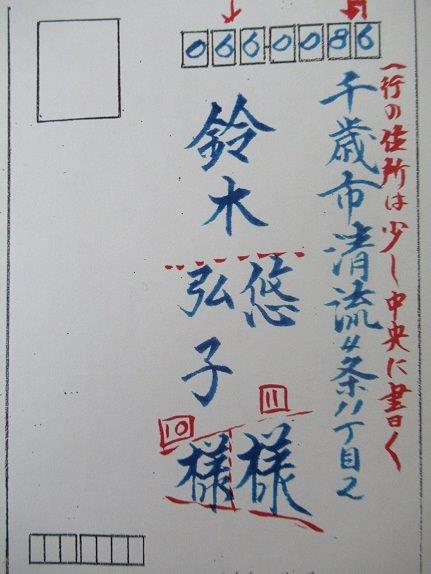 0660086
一行の住所は少し中央に書く
千歳市清流4条11丁目2
鈴木
悠
弘子
11
10
様
様